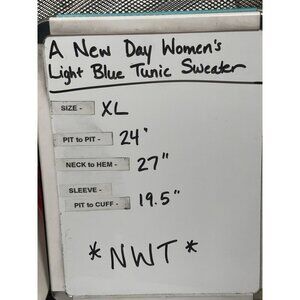 A New Day Women's
Light Blue Tunic Sweater
SIZE - XL
PIT to PIT - 24"
NECK to HEM - 27"
SLEEVE -
PIT to CUFF - 19.5"
*NWT*